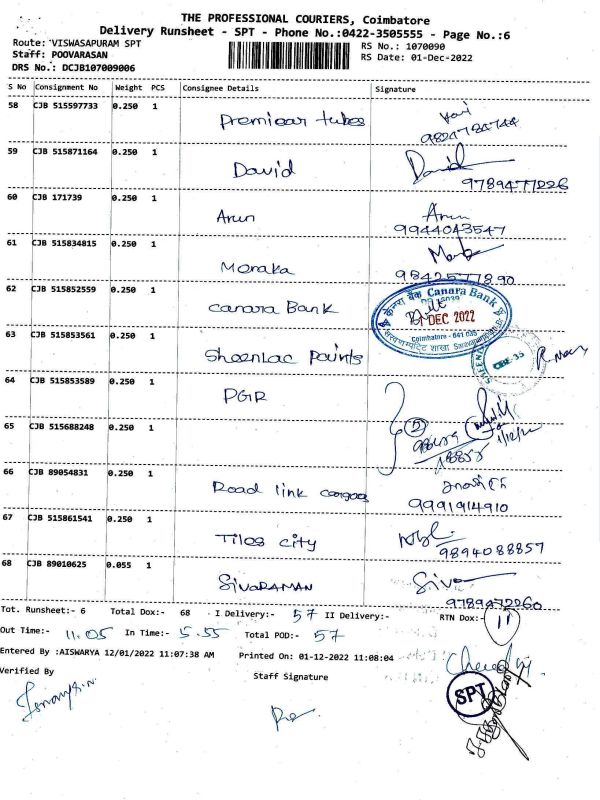 THE PROFESSIONAL COURIERS, Coimbatore
Delivery Runsheet - SPT - Phone No.:0422-3505555 - Page No.:6
Route: VISWASAPURAM SPT
Staff: POOVARASAN
DRS No.: DCJB107009006
RS No.: 1070090
RS Date: 01-Dec-2022
S No Consignment No Weight PCS Consignee Details Signature
58 CJB 515597733 0.250 1 Premiear tubes
59 CJB 515871164 0.250 1 David David
9789477226
60 CJB 171739 0.250 1 Arun Arun
9944043547
61 CJB 515834815 0.250 1 Moraka
9842577890
62 CJB 515852559 0.250 1 Canara Bank
केनरा बैंक Canara Bank
DEC 2022
Coimbatore - 641 035
63 CJB 515853561 0.250 1 Sheenlac Paints
CBE-35
64 CJB 515853589 0.250 1 PGR
65 CJB 515688248 0.250 1
2
1/12/22
66 CJB 89054831 0.250 1 Road link
9991914910
67 CJB 515861541 0.250 1 Tiles city
9894088857
68 CJB 89010625 0.055 1 SIVARAMAN Siva
9789472260
Tot. Runsheet:- 6 Total Dox:- 68 I Delivery:- 57 II Delivery:- RTN Dox:- 11
Out Time:- 11.05 In Time:- 5.55 Total POD:- 57
Entered By :AISWARYA 12/01/2022 11:07:38 AM Printed On: 01-12-2022 11:08:04
Verified By Staff Signature
SPT